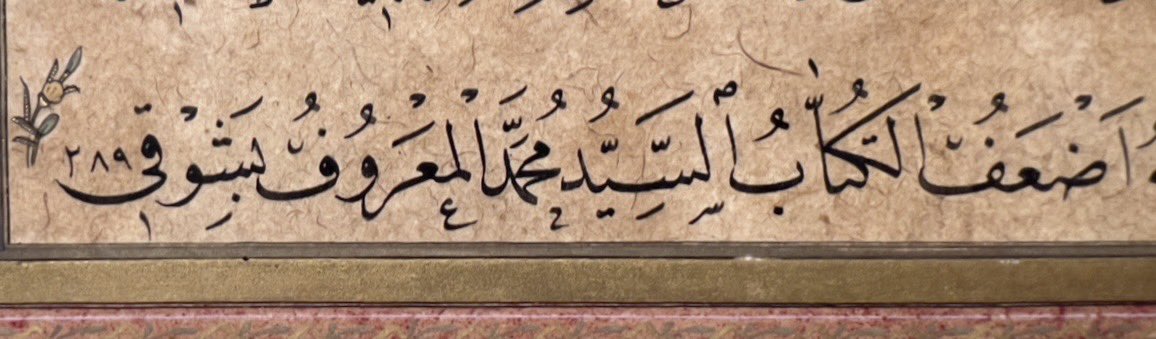 اَضْعَفُ الْكُتَّابُ السَّيِّدُ مُحَمَّدُ الْمَعْرُوفُ بِشَوْقِي ٢٨٩